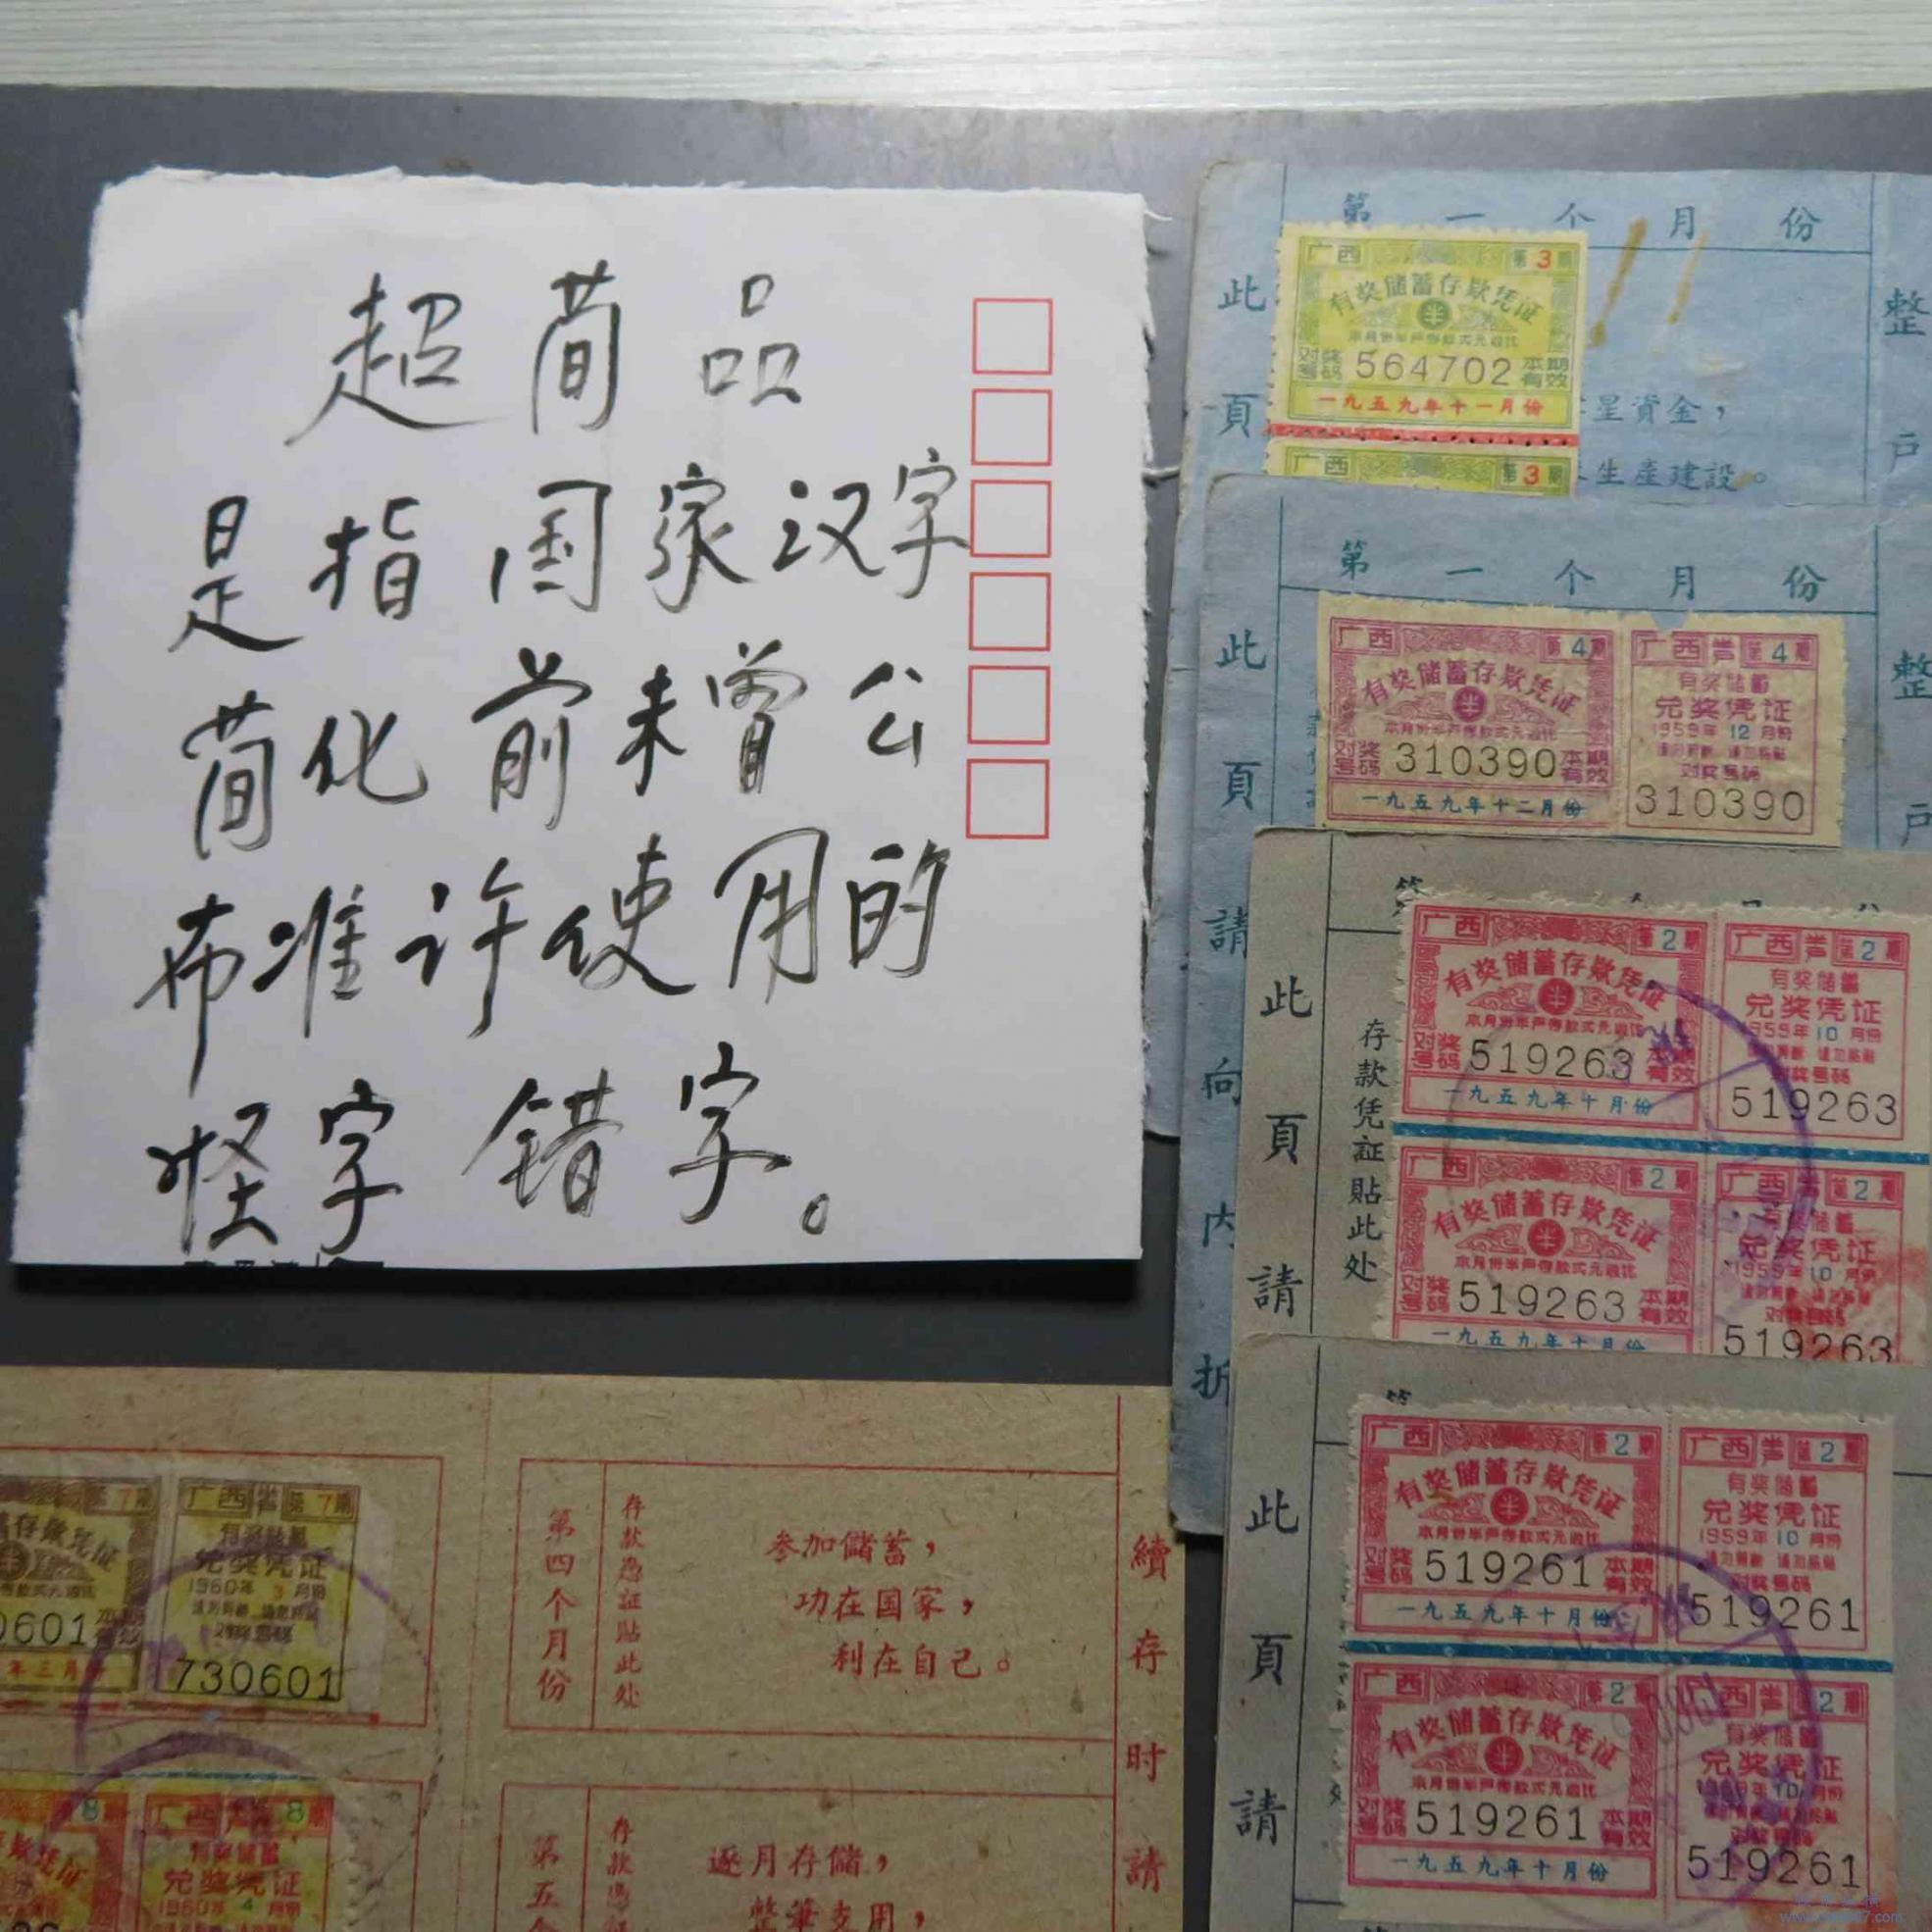 超简品
是指国家汉字
简化前未曾公
布准许使用的
怪字错字。
第一个月份
此頁
整戶
广西 第3期
有奖儲蓄存款凭证
半
对奖号码 564702 本期有效
一九五九年十一月份
星資金，
生産建設。
广西 第3
第一个月份
此頁請向內折
整戶
广西 第4期
有奖儲蓄存款凭证
半
对奖号码 310390 本期有效
一九五九年十二月份
广西 第4期
有奖儲蓄
兑奖凭证
1959年12月份
对奖号码
310390
此頁請
存款凭証貼此处
广西 第2期
有奖儲蓄存款凭证
半
对奖号码 519263 本期有效
一九五九年十月份
广西 第2期
有奖儲蓄
兑奖凭证
1959年10月份
对奖号码
519263
广西 第2期
有奖儲蓄存款凭证
半
对奖号码 519263 本期有效
一九五九年十月份
广西 第2期
有奖儲蓄
兑奖凭证
1959年10月份
对奖号码
519263
第
此頁請
广西 第2期
有奖儲蓄存款凭证
半
对奖号码 519261 本期有效
一九五九年十月份
广西 第2期
有奖儲蓄
兑奖凭证
1959年10月份
对奖号码
519261
广西 第2期
有奖儲蓄存款凭证
半
对奖号码 519261 本期有效
一九五九年十月份
西 第2期
有奖儲蓄
兑奖凭证
10月份
对奖号码
519261
第7期
蓄存款凭证
0601 本期有效
年三月份
广西 第7期
有奖儲蓄
兑奖凭证
1960年3月份
对奖号码
730601
8
广西 8期
有奖儲蓄
兑奖凭证
1960年4月份
第四个月份
存款凭証貼此处
参加儲蓄，
功在国家，
利在自己。
第五个
存款凭証
逐月存儲，
整筆支用，
續存时請